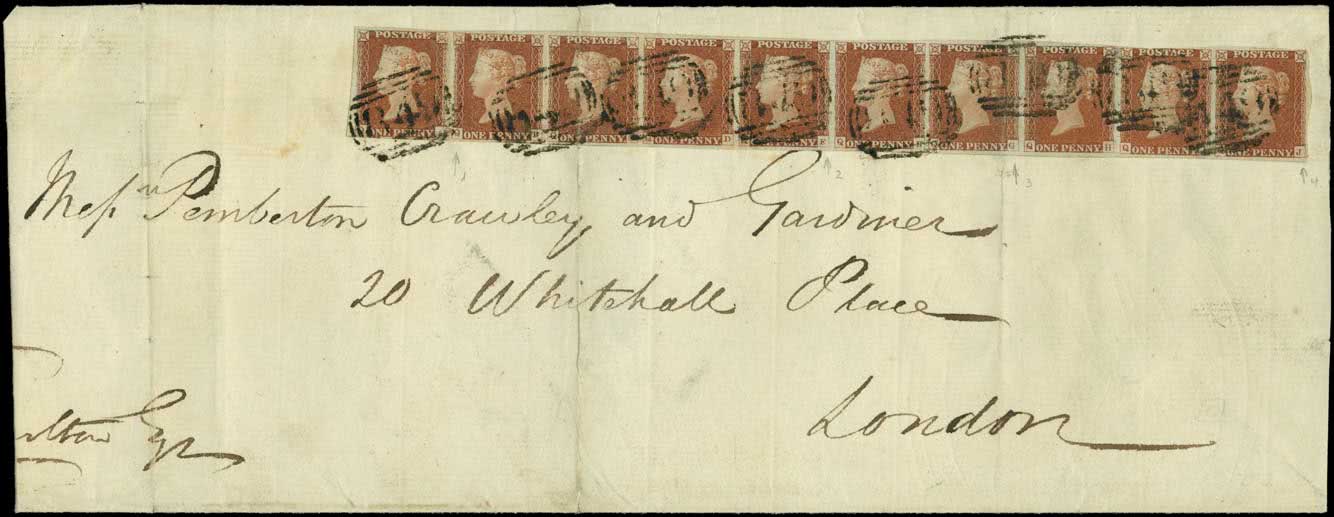 POSTAGE POSTAGE POSTAGE POSTAGE POSTAGE POSTAGE POSTAGE POSTAGE POSTAGE POSTAGE
ONE PENNY ONE PENNY ONE PENNY ONE PENNY ONE PENNY ONE PENNY ONE PENNY ONE PENNY ONE PENNY ONE PENNY
1 2 3 4
Messrs Pemberton Crawley, and Gardiner
20 Whitehall Place
London
Esqr